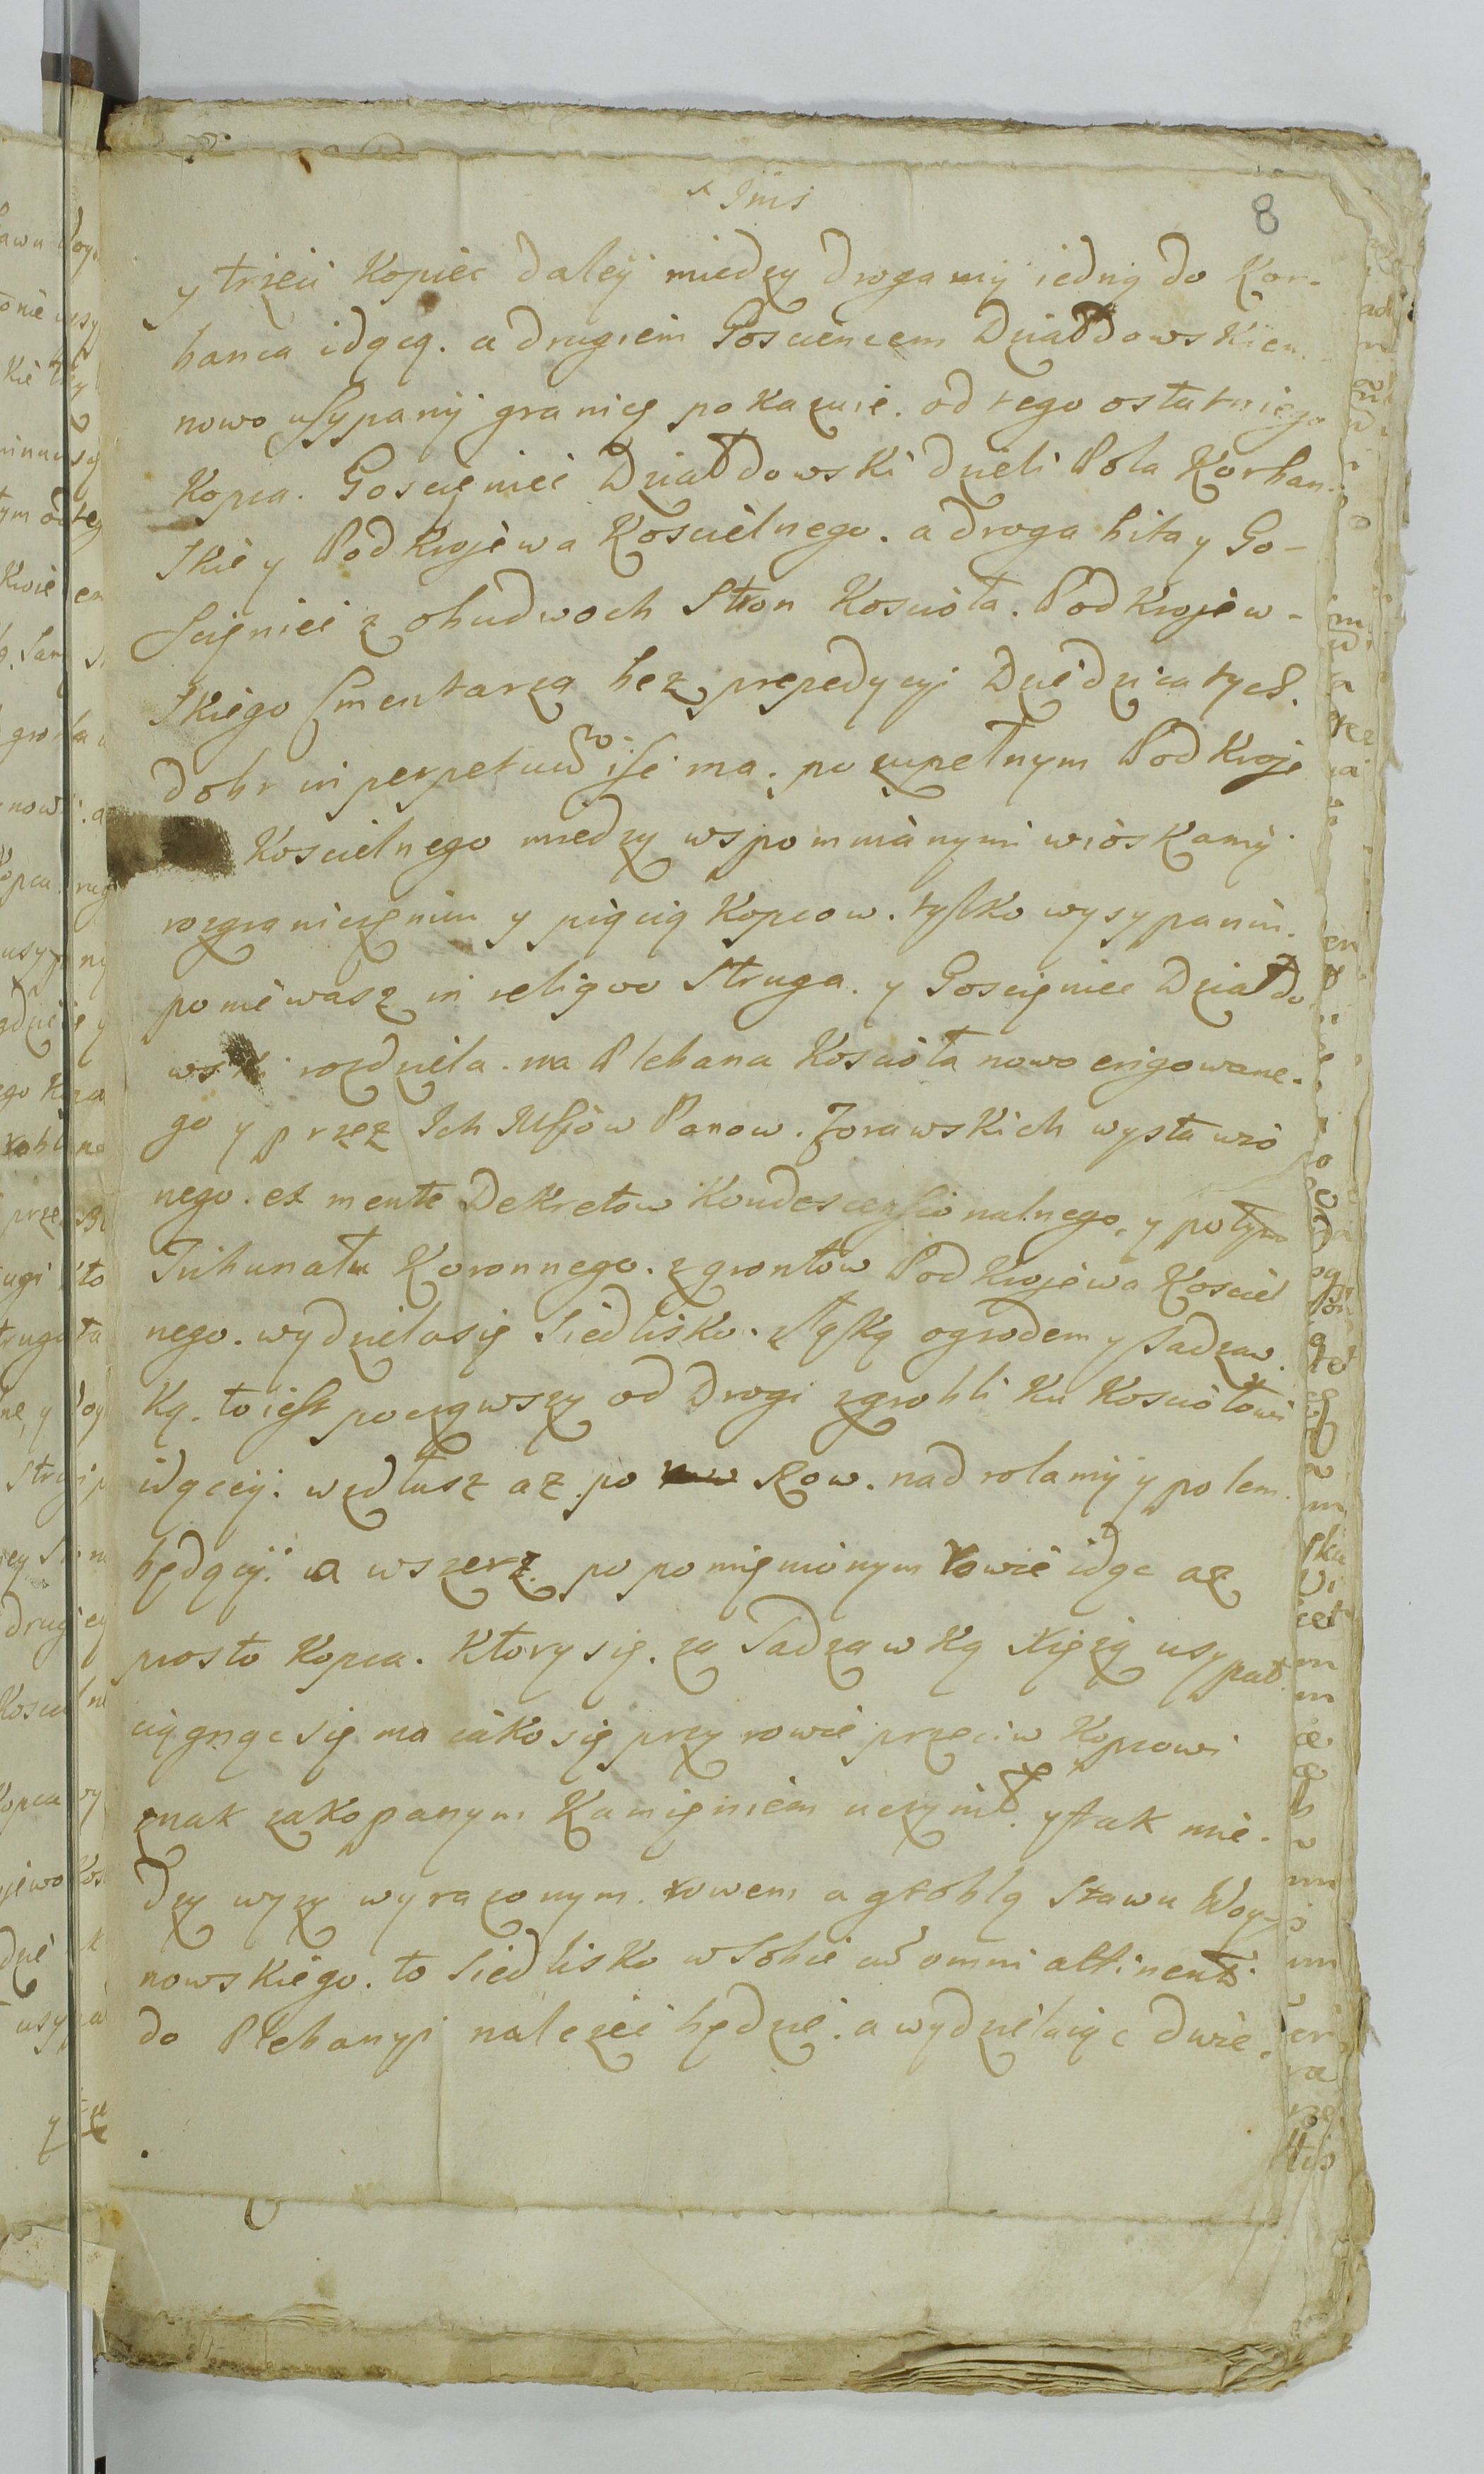 8
y trzeci Kopiec daleÿ miedzy drogamÿ iedną do Kor-
banca idącą. a drugiem Goscieńcem Działdowskiem
nowo usypanÿ granicę pokazuie. od tego ostatniego
Kopca. Goscięniec Działdowski dzieli Pola Korban-
skie y Podkrojewa Koscielnego. a droga bita y Go-
scięniec z obudwoch Stron Koscioła. Podkrojew-
skiego Smentarzą bez prepedycyi Dziedzica tych.
dobr in perpetuum iść ma. po zupełnym Podkroje
Koscielnego miedzy wspomnianymi wioskamÿ
rozgraniczęniu y pięcią Kopcow. tylko wysypaniu.
poniewasz in reliquo Struga. y Goscięniec Działdo
wski rozdziela. na Plebana Kosciola nowo erigowane-
go y przez Ich Mściow Panow. Zorawskich wystawio
nego. ex mente Dekretow Kondescensionalnego, y potym
Tribunału Koronnego. z grontow Podkrojewa Kosciel
nego. wydzielasię Siedlisko. z łąką ogrodem y sadzaw
ką. to iest począwszy od drogi z grobli ku Kosciołowi
idąceÿ. wzdłusz az po Row. nad rolamÿ y polem
będącÿ. a wszerz. po pomięnionym rowie idąc az
prosto Kopca. Ktory się. za Sadzawką Xięzą usypał
ciągnąc się ma iako się przy rowie przeciw Kopcowi
znak zakopanym Kamięniem uczynił. y tak mie-
dzy wyzy wyrazonym. rowem a groblą Stawu Woy-
nowskiego. to Siedlisko w Sobie cum omni attinenti
do Plebanyi nalezeć będzie. a wydzielaiąc dwie